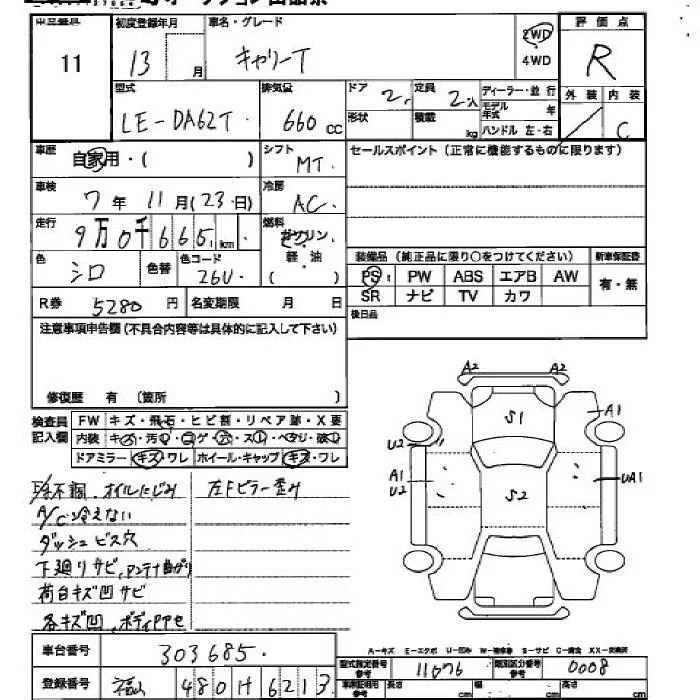 オークション出品票
11
初度登録年月
13 月
車名・グレード
キャリーT
2WD
4WD
評価点
R
外装 内装
C
型式
LE-DA62T
排気量
660 cc
ドア 2
形状
定員 2人
積載 kg
ディーラー・並行
モデル年式 年
ハンドル 左・右
車歴 自家用・( )
シフト MT
セールスポイント(正常に機能するものに限ります)
車検 7年11月(23日)
冷房 AC
走行 9万0千665km
燃料 ガソリン 軽油 ( )
色 シロ 色替
色コード 26U
装備品(純正品に限り○をつけてください)
新車保証書
PS PW ABS エアB AW
有・無
SR ナビ TV カワ
R券 5280 円
名変期限 月 日
後日品
注意事項申告欄(不具合内容等は具体的に記入して下さい)
修復歴 有 (箇所 )
検査員記入欄
FW キズ・飛石・ヒビ割・リペア跡・X要
内装 キズ・汚れ・コゲ・穴・スレ・ベタリ・破れ
ドアミラー キズ・ワレ ホイール・キャップ キズ・ワレ
オイルにじみ 左Fピラー歪み
A/C冷えない
ダッシュビス穴
下廻りサビ,アンテナ曲がり
荷台キズ凹サビ
各キズ凹、ボディ
A2 A2
S1
A1
U2
A1
U2
S2
UA1
A-キズ E-エクボ U-凹み W-補修巻 S-サビ C-腐食 XX-交換済
車台番号 303685
型式指定番号 参考 11076
類別区分番号 参考 0008
登録番号 福山 480 H 6213
長さ cm 幅 cm 高さ cm